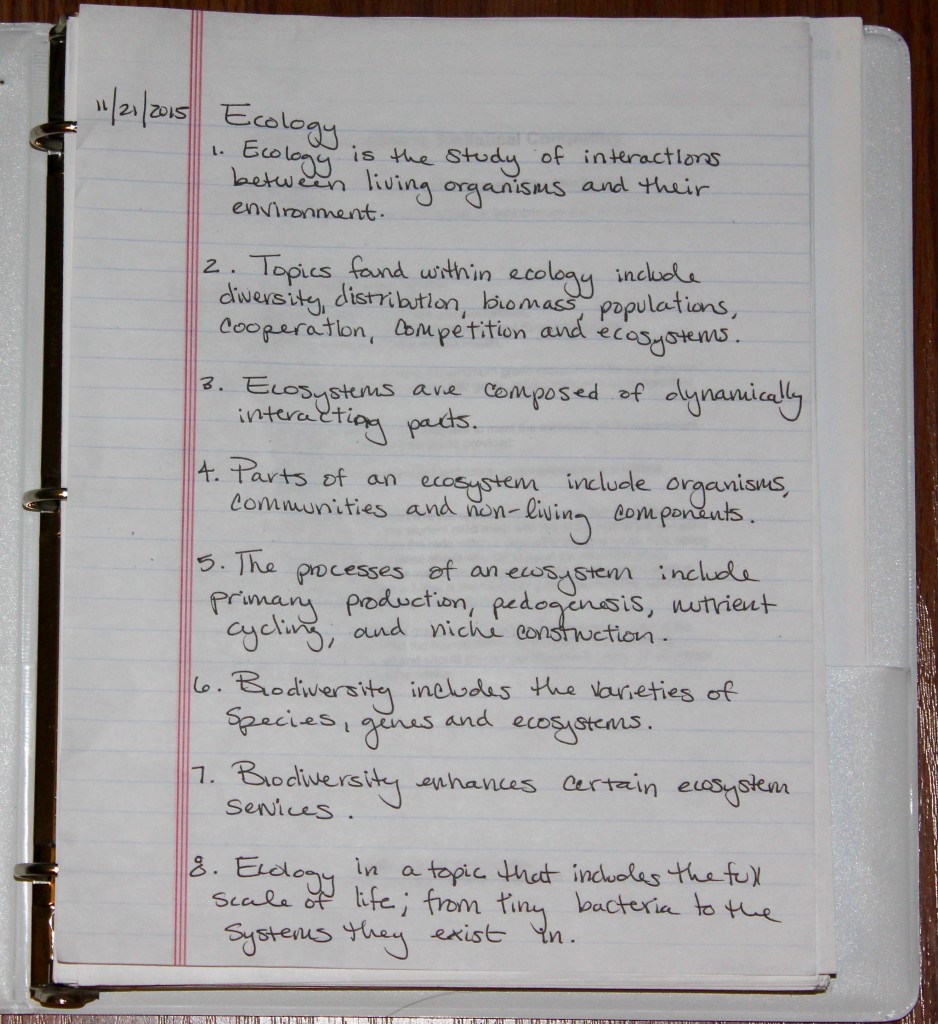 11/21/2015 Ecology
1. Ecology is the study of interactions
between living organisms and their
environment.
2. Topics found within ecology include
diversity, distribution, biomass, populations,
cooperation, competition and ecosystems.
3. Ecosystems are composed of dynamically
interacting parts.
4. Parts of an ecosystem include organisms,
communities and non-living components.
5. The processes of an ecosystem include
primary production, pedogenesis, nutrient
cycling, and niche construction.
6. Biodiversity includes the varieties of
species, genes and ecosystems.
7. Biodiversity enhances certain ecosystem
services.
8. Ecology in a topic that includes the full
scale of life; from tiny bacteria to the
systems they exist in.